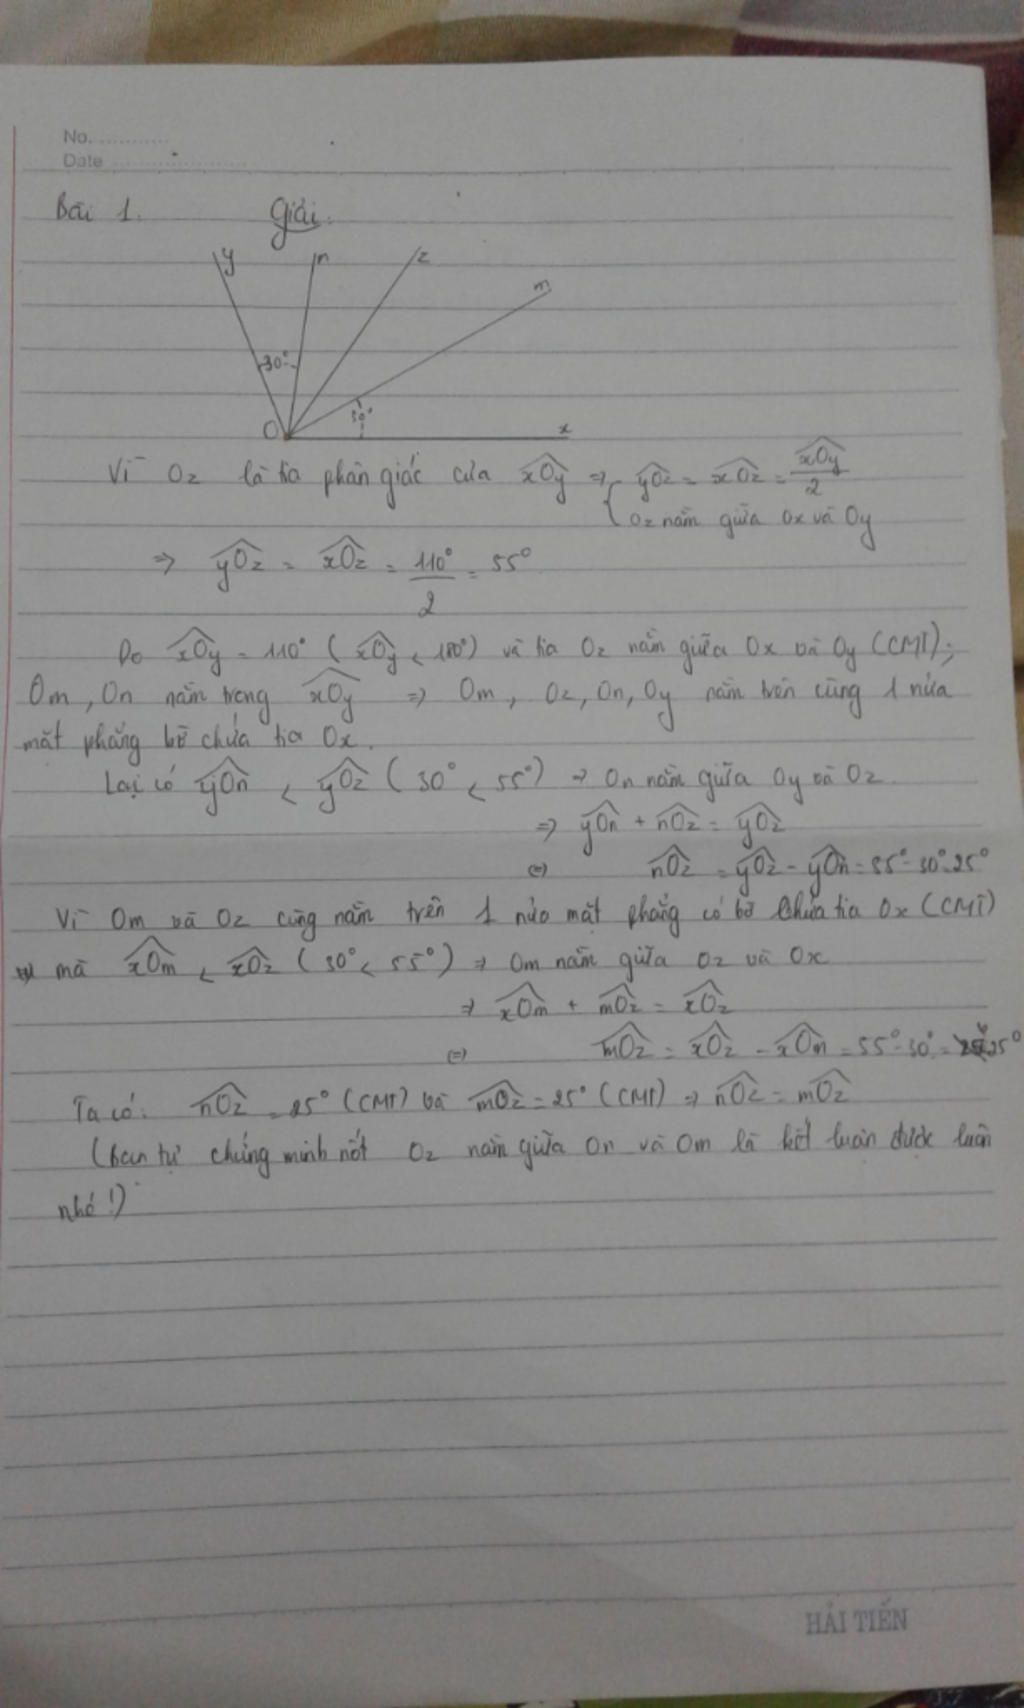 No. ............
Date ......................
Bài 1. Giải.
y n z m
30°
30°
O x
Vì Oz là tia phân giác của xOy => { yOz = xOz = xOy/2
Oz nằm giữa Ox và Oy
=> yOz = xOz = 110°/2 = 55°
Do xOy = 110° (xOy < 180°) và tia Oz nằm giữa Ox và Oy (CMT);
Om, On nằm trong xOy => Om, Oz, On, Oy nằm trên cùng 1 nửa
mặt phẳng bờ chứa tia Ox.
Lại có yOn < yOz (30° < 55°) => On nằm giữa Oy và Oz
=> yOn + nOz = yOz
(=) nOz = yOz - yOn = 55° - 30° = 25°
Vì Om và Oz cùng nằm trên 1 nửa mặt phẳng có bờ chứa tia Ox (CMT)
mà xOm < xOz (30° < 55°) => Om nằm giữa Oz và Ox
=> xOm + mOz = xOz
(=) mOz = xOz - xOm = 55° - 30° = 25°
Ta có: nOz = 25° (CMT) và mOz = 25° (CMT) => nOz = mOz
(bạn tự chứng minh nốt Oz nằm giữa On và Om là kết luận được luôn
nhé!)
HẢI TIẾN